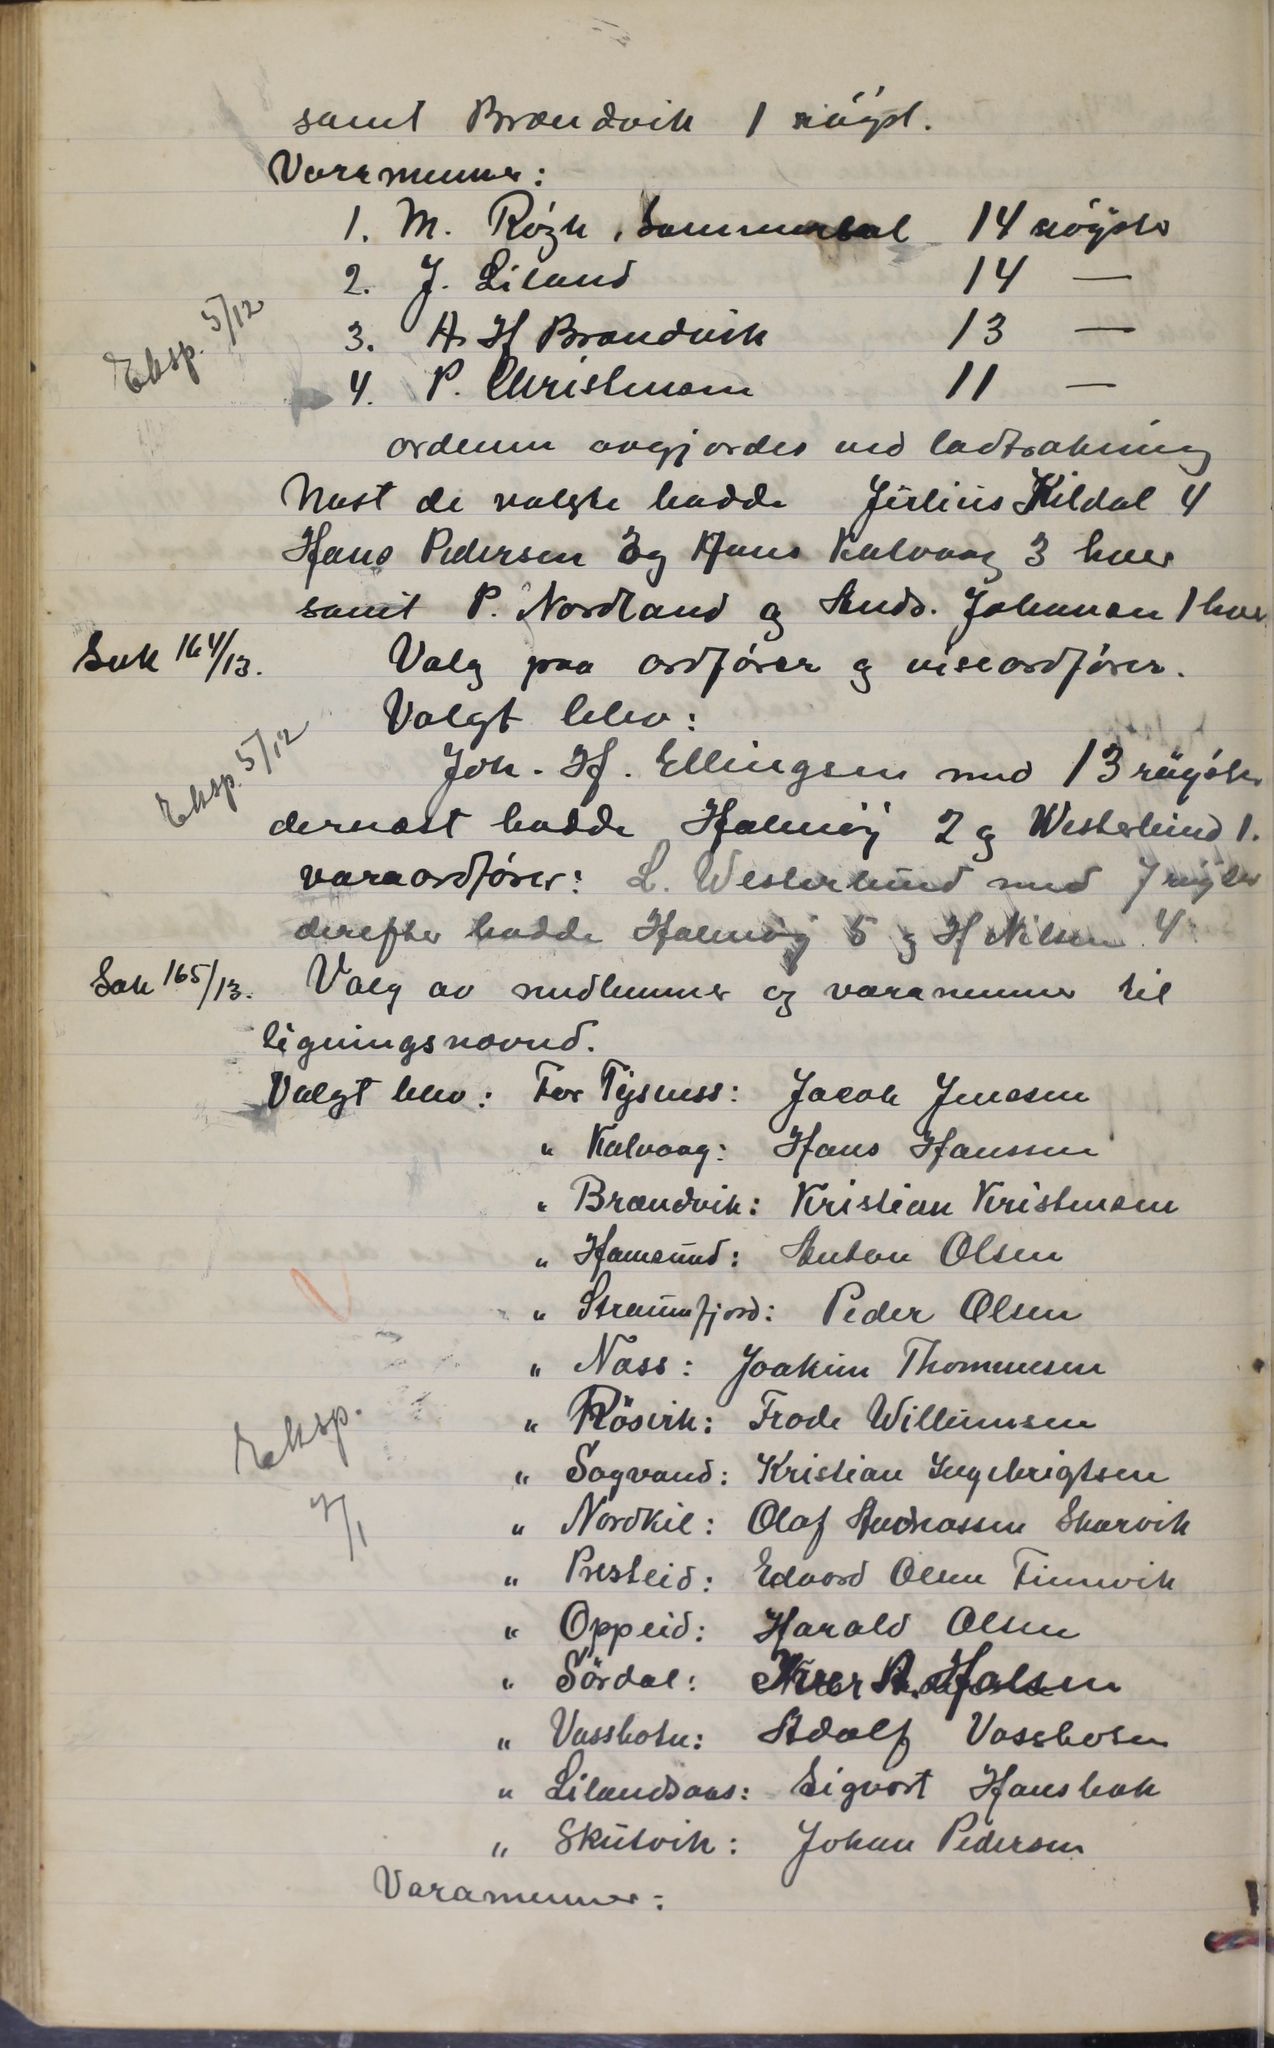 samt Brændvik 1 röyst.
Varamenner:
1. M. Rözk, Sommersæl 14 röyster
2. J. Liland 14 —
3. A. H Brændvik 13 —
Eksp. 5/12
4. P. Christensen 11 —
ordenen avgjordes ved lodtrækning
Næst de valgte hadde Julius Kildal 4
Hans Pedersen og Hans Kalvaag 3 hver
samt P. Nordland og Ands. Johansen 1 hver
Sak 164/13. Valg paa ordförer og viseordförer.
Valgt blev:
Eksp. 5/12
Joh. Hf. Ellingsen med 13 röyster
dernæst hadde Halmöy 2 og Westerlund 1.
varaordförer: L. Westerlund med 7 röyster
derefter hadde Halmöy 5 og H Nilsen 4
Sak 165/13. Valg av medlemmer og varamenner til
ligningsnævnd.
Valgt blev: For Tysness: Jacob Jenssen
" Kalvaag: Hans Hanssen
" Brændvik: Kristian Kristensen
" Hamsund: Anton Olsen
" Straumfjord: Peder Olsen
" Næss: Joakim Thommesen
Eksp. 7/1
" Rösvik: Frode Willumsen
" Sagvand: Kristian Ingebrigtsen
" Nordkil: Olaf Andreassen Skarvik
" Presteid: Edvard Olsen Finnvik
" Oppeid: Harald Olsen
" Sördal: A. Halsen
" Vassbotn: Adolf Vassbotn
" Lilandsaas: Sigvart Hansbak
" Skutvik: Johan Pedersen
Varamenner: